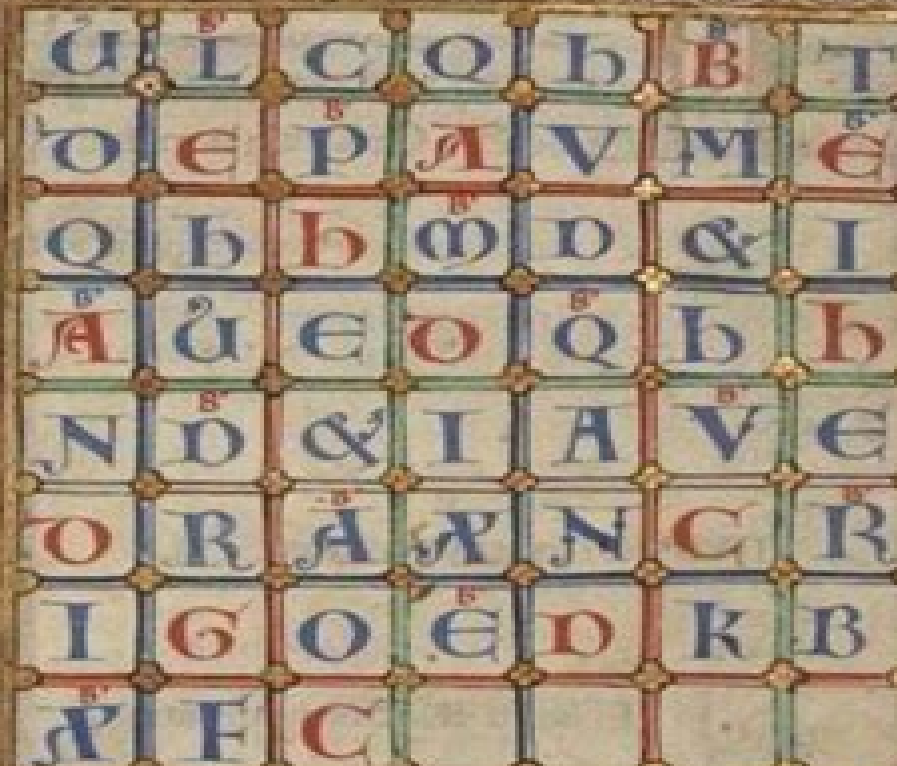 U L C Q h B T
O E P A V M E
Q h h M D & I
A U E O Q h h
N D & I A V E
O R A X N C R
I G O E D K B
X F C